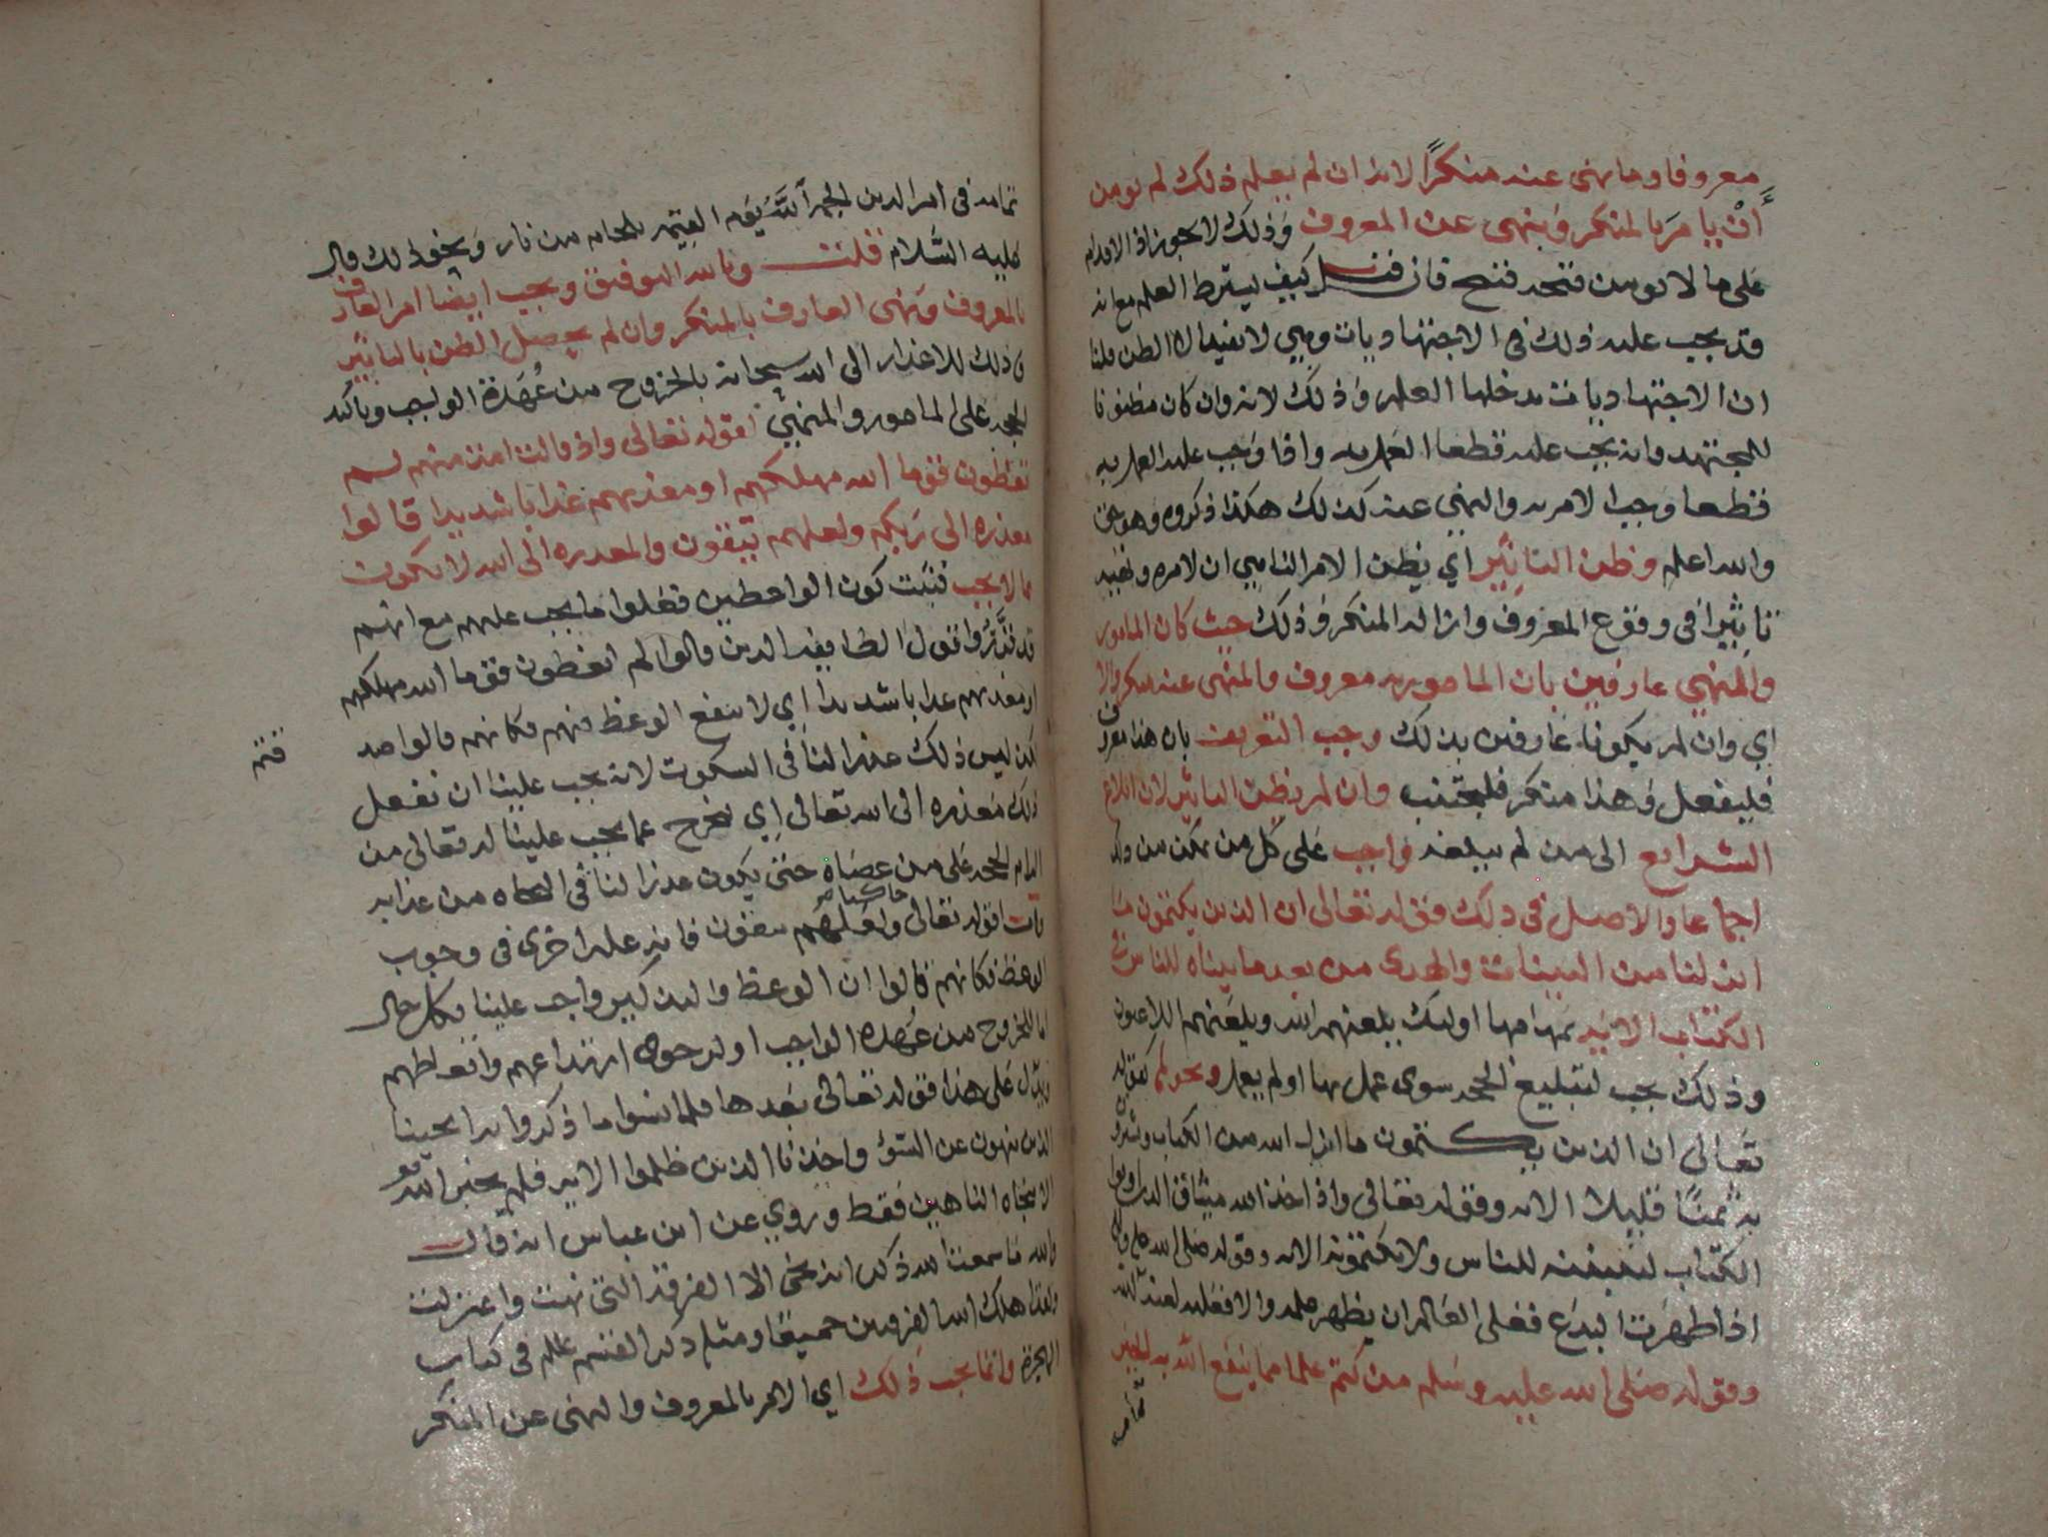 معروفا وما نهى عنه منكرًا لانه ان لم يعلم ذلك لم يومن
أن يامر بالمنكر وينهى عن المعروف وذلك لا يجوز اذ الاقدام
على ما لا يومن قبحه قبيح فان قيل كيف يشترط العلم مع انه
قد يجب عليه ذلك في الاجتهاديات وهي لا تفيد الا الظن قلنا
ان الاجتهاديات يدخلها العلم وذلك لانه وان كان مظنونا
للمجتهد فانه يجب عليه قطعا العمل به واذا وجب عليه العمل به
قطعا وجب الامر به والنهي عنه كذلك هكذا ذكروه وهو حق
والله اعلم وظن التاثير اي يظن الامر الناهي ان لامره ونهيه
تاثيرا في وقوع المعروف وازالة المنكر وذلك حيث كان المامور
والمنهي عارفين بان المامور به معروف والمنهى عنه منكر والا
اي وان لم يكونا عارفين بذلك وجب التعريف بان هذا معروف
فليفعل وهذا منكر فليجتنب وان لم يظن التاثير لان ابلاغ
الشرايع الى من لم يبلغه واجب على كل من تمكن من ذلك
اجماعا والاصل في ذلك قوله تعالى ان الذين يكتمون ما
انزلنا من البينات والهدى من بعد ما بيناه للناس في
الكتاب الاية تمامها اوليك يلعنهم الله ويلعنهم اللاعنون
وذلك يجب لتبليغ الحجه سوى عمل بها او لم يعمل ونحوها كقوله
تعالى ان الذين يكتمون ما انزل الله من الكتاب ويشترون
به ثمنًا قليلا الايه وقوله تعالى واذ اخذ الله ميثاق الذين اوتوا
الكتاب لتبيننه للناس ولا تكتمونه الايه وقوله صلى الله عليه واله
اذا ظهرت البدع فعلى العالم ان يظهر علمه والا فعليه لعنة الله
وقوله صلى الله عليه وسلم من كتم علما مما ينفع الله به الخبر
تمامه
تمامه في امر الدين الجمه الله يوم القيمه بلجام من نار ونحو ذلك قال
عليه السلام قلت وبالله التوفيق ويجب ايضا امر العارف
بالمعروف ونهي العارف بالمنكر وان لم يحصل الظن بالتاثير
وذلك للاعذار الى الله سبحانه بالخروج من عُهدة الواجب وتاكيد
الحجه على المامور والمنهي لقوله تعالى واذ قالت امة منهم لم
تعظون قوما الله مهلكهم او معذبهم عذابا شديدا قالوا
معذره الى ربكم ولعلهم يتقون والمعذره الى الله لا تكون
مما لا يجب فثبت كون الواعظين فعلوا ما يجب عليهم مع انهم
قد قرروا قول الطايفه الذين قالوا لم تعظون قوما الله مهلكهم
او معذبهم عذابا شديدا اي لا ينفع الوعظ فيهم فكانهم قالوا صد
لكن ليس ذلك عذرا لنا في السكوت لانه يجب علينا ان نفعل
ذلك معذره الى الله تعالى اي نخرج عما يجب علينا له تعالى من
الزام الحجه على من عصاه حتى يكون عذرا لنا في النجاه من عذابه
حاكيا
واما قوله تعالى ولعلهم يتقون فانه علة اخرى في وجوب
الوعظ فكانهم قالوا ان الوعظ والتذكير واجب علينا بكل حال
اما للخروج من عُهده الواجب او لرجوى ارتداعهم واتعاظهم
ويدل على هذا قوله تعالى بعدها فلما نسوا ما ذكروا به انجينا
الذين ينهون عن السؤ واخذنا الذين ظلموا الايه فلم يخبر الله
الا بنجاه الناهين فقط وروي عن ابن عباس انه قال
والله ما سمعنا الله ذكر انه نجى الا الفرقة التي نهت واعتزلت
ولقد اهلك الله الفرقتين جميعًا ومثله ذكر القسم علم في كتاب
الهجرة وانما يجب ذلك اي الامر بالمعروف والنهي عن المنكر